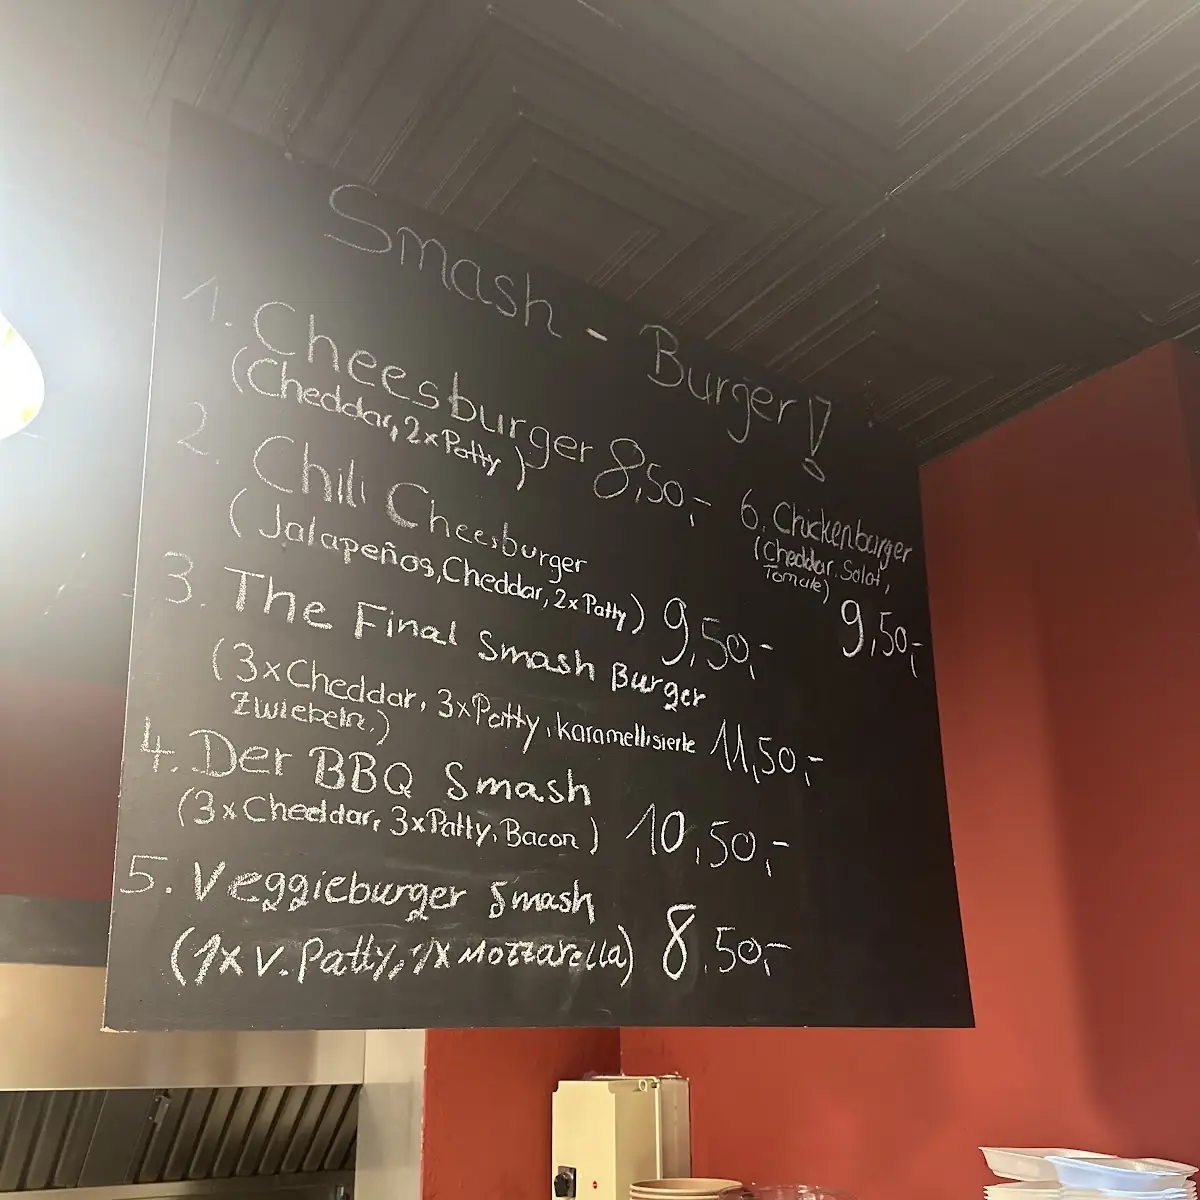 Smash - Burger!
1. Cheesburger 8,50,-
(Cheddar, 2x Patty)
2. Chili Cheesburger
(Jalapeños, Cheddar, 2x Patty) 9,50,-
3. The Final Smash Burger
(3x Cheddar, 3x Patty, karamellisierte 11,50,-
Zwiebeln,)
4. Der BBQ Smash
(3x Cheddar, 3x Patty, Bacon) 10,50,-
5. Veggieburger Smash
(1x V. Patty, 1x Mozzarella) 8.50,-
6. Chickenburger
(Cheddar, Salat,
Tomate)
9,50,-